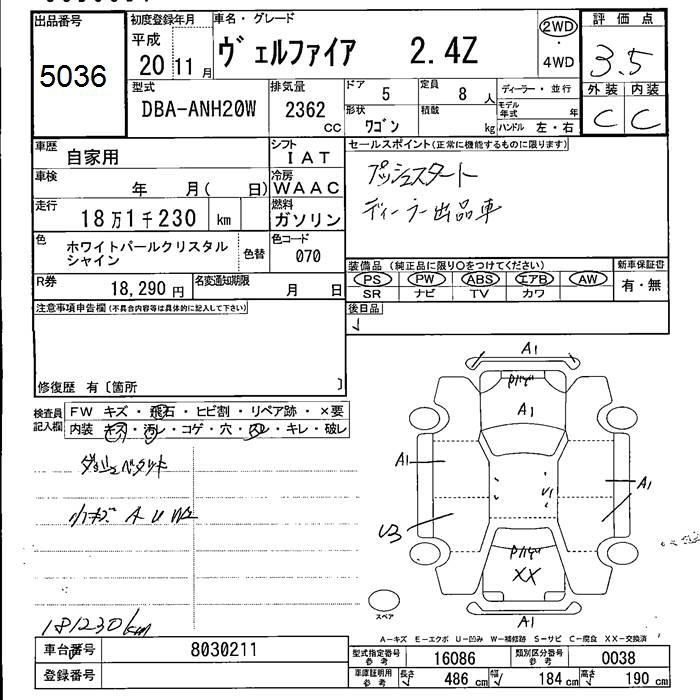 出品番号 初度登録年月 車名・グレード 2WD 評価点
5036 平成 20 11月 ヴェルファイア 2.4Z ・ 3.5
4WD
型式 排気量 ドア 5 定員 8人 ディーラー・並行 外装 内装
DBA-ANH20W 2362cc 形状 ワゴン 積載 kg モデル年式 年 C C
ハンドル 左・右
車歴 自家用 シフト IAT セールスポイント(正常に機能するものに限ります)
車検 年 月( 日) 冷房 WAAC プッシュスタート
走行 18万1千230 km 燃料 ガソリン ディーラー出品車
色 ホワイトパールクリスタル 色替 色コード
シャイン 070
装備品(純正品に限り○をつけてください) 新車保証書
R券 18,290円 名変通知期限 月 日 PS PW ABS エアB AW 有・無
SR ナビ TV カワ
注意事項申告欄(不具合内容等は具体的に記入して下さい) 後日品
修復歴 有〔箇所 〕
検査員 FW キズ・飛石・ヒビ割・リペア跡・×要
記入欄 内装 キズ・汚レ・コゲ・穴・スレ・キレ・破レ
小キズ A U W2
181230km
A1
A1
A1
A1
U1
U3
XX
A1
スペア
A-キズ E-エクボ U-凹み W-補修跡 S-サビ C-腐食 XX-交換済
車台番号 8030211 型式指定番号 参考 16086 類別区分番号 参考 0038
登録番号 車庫証明用 参考 長さ 486cm 幅 184cm 高さ 190cm